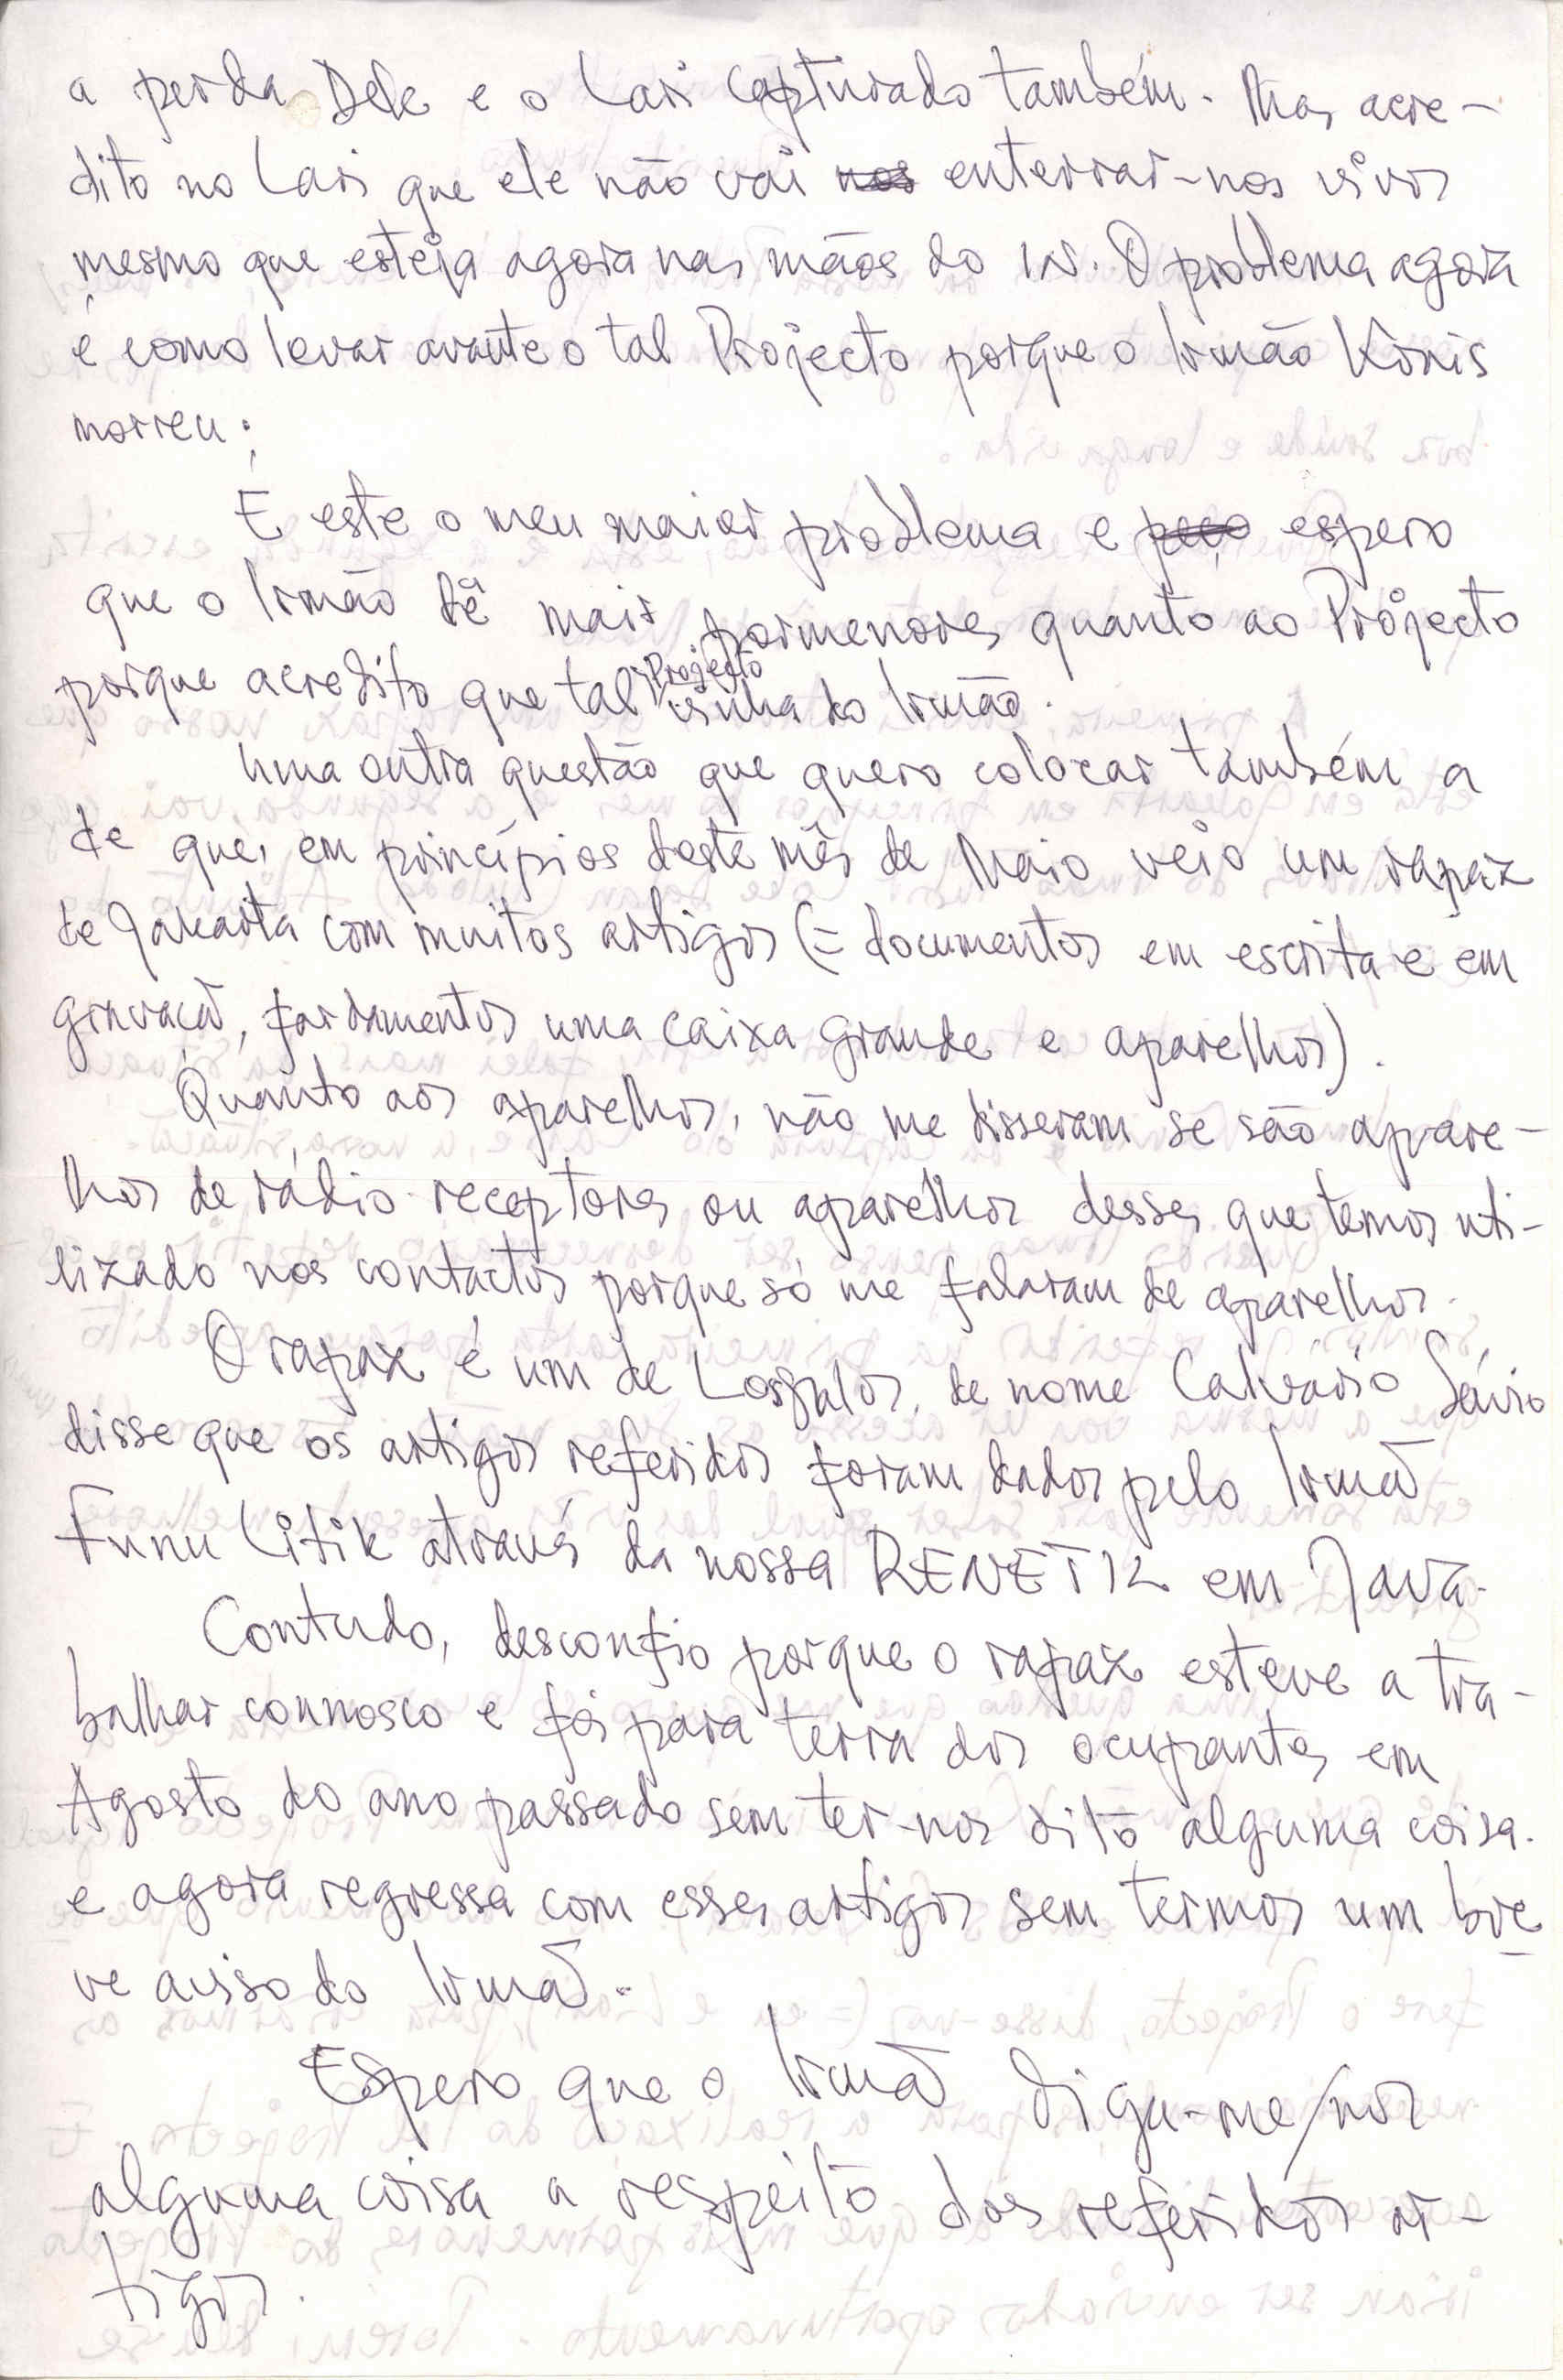 a perda Dele e o Lari capturado também. Mas acre-
dito no Lari que ele não vai nos enterrar-nos vivos
mesmo que esteja agora nas mãos do IN. O problema agora
é como levar avante o tal Projecto porque o Irmão Konis
morreu;
É este o meu maior problema e peço espero
que o Irmão dê mais pormenores quanto ao Projecto
porque acredito que tal Projecto vinha do Irmão.
Uma outra questão que quero colocar também a
de que, em princípios deste mês de Maio veio um rapaz
de Jakarta com muitos artigos (= documentos em escrita e em
gravação, fardamentos uma caixa grande e aparelhos).
Quanto aos aparelhos, não me disseram se são apare-
lhos de rádio receptores ou aparelhos desses que temos uti-
lizado nos contactos porque só me falaram de aparelhos.
O rapaz é um de Lospalos, de nome Calvário Sávio
disse que os artigos referidos foram dados pelo Irmão
Funu Litik através da nossa RENETIL em Java.
Contudo, desconfio porque o rapaz esteve a tra-
balhar connosco e foi para terra dos ocupantes em
Agosto do ano passado sem ter-nos dito alguma coisa.
e agora regressa com esses artigos sem termos um bre
ve aviso do Irmão.
Espero que o Irmão diga-me/nos
alguma coisa a respeito dos referidos ar-
tigos.